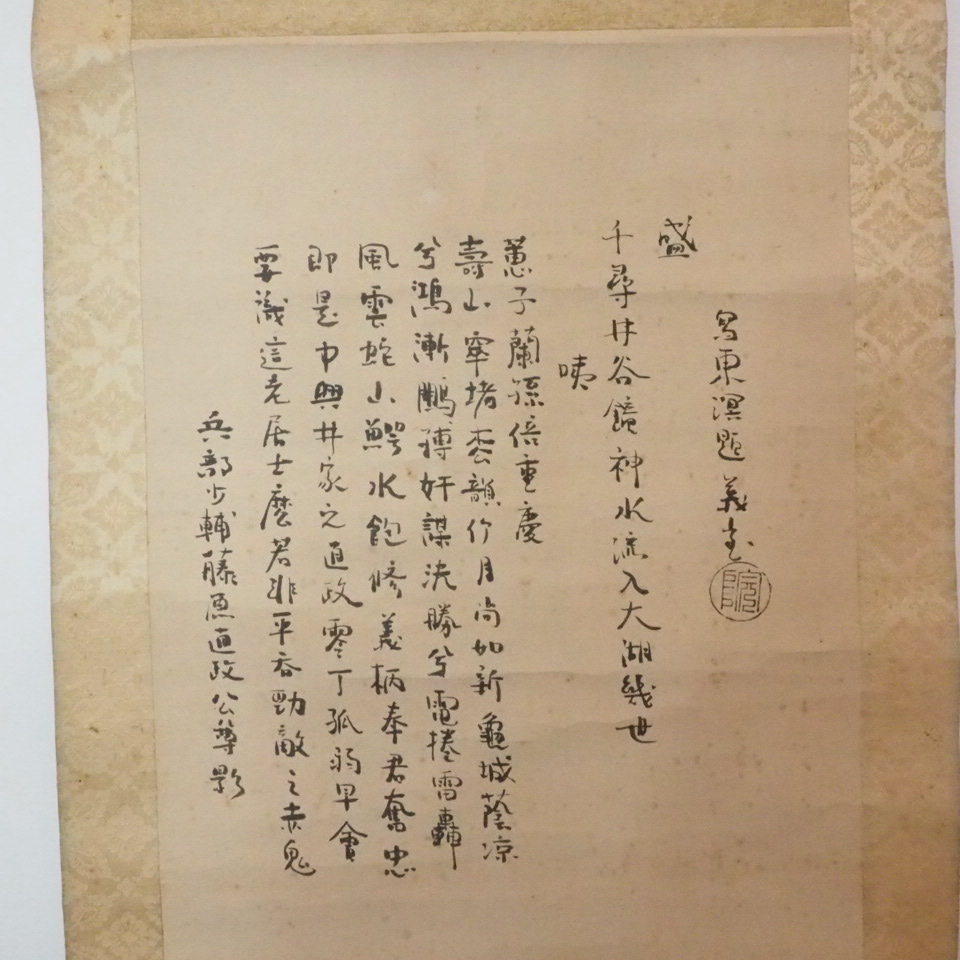 兵部少輔藤原直政公尊影
要識這老居士麼君非平吞勁敵之赤鬼
即是中興井家之直政零丁孤弱早會
風雲蛇山鰐水飽脩義柄奉君奮忠
兮鴻漸鵬搏奸謀決勝兮電捲雷轟
壽山窣堵枩韻竹月尚如新龜城蔭凉
蕙子蘭孫倍重慶
咦
千尋井谷神水流入大湖幾世
盛
東溟題 義堂